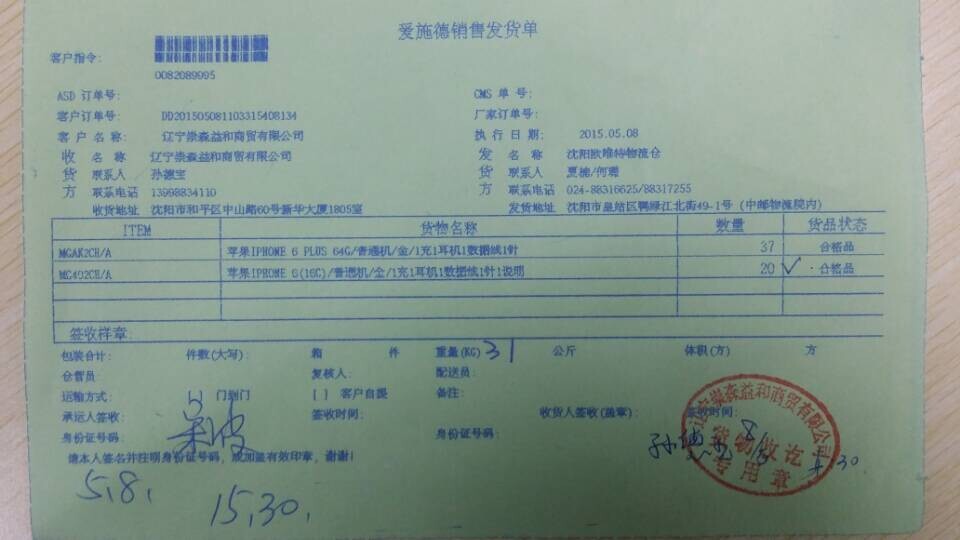 爱施德销售发货单
客户指令:
0082089995
ASD 订单号: CMS 单 号:
客户订单号: DD201505081103315408134 厂家订单号:
客 户 名 称: 辽宁崇淼益和商贸有限公司 执 行 日 期: 2015.05.08
收 名 称 辽宁崇淼益和商贸有限公司 发 名 称 沈阳欧唯特物流仓
货 联系人 孙德宝 货 联系人 贾楠/何珊
方 联系电话 13998834110 方 联系电话 024-88316625/88317255
收货地址 沈阳市和平区中山路60号新华大厦1805室 发货地址 沈阳市皇姑区鸭绿江北街49-1号 (中邮物流院内)
ITEM 货物名称 数量 货品状态
MGAK2CH/A 苹果IPHONE 6 PLUS 64G/普通机/金/1充1耳机1数据线1针 37 合格品
MG492CH/A 苹果IPHONE 6(16G)/普通机/金/1充1耳机1数据线1针1说明 20 ✓ 合格品
签收样章:
包装合计: 件数(大写): 箱 件 重量(KG) 31 公斤 体积(方) 方
仓管员: 复核人: 配送员:
运输方式: [ ] 门到门 [ ] 客户自提 备注:
承运人签收: 签收时间: 收货人签收(盖章): 签收时间:
身份证号码: 身份证号码:
请本人签名并注明身份证号码, 或加盖有效印章, 谢谢!
5.8.
15,30,
辽宁崇淼益和商贸有限公司
货物收讫
专用章